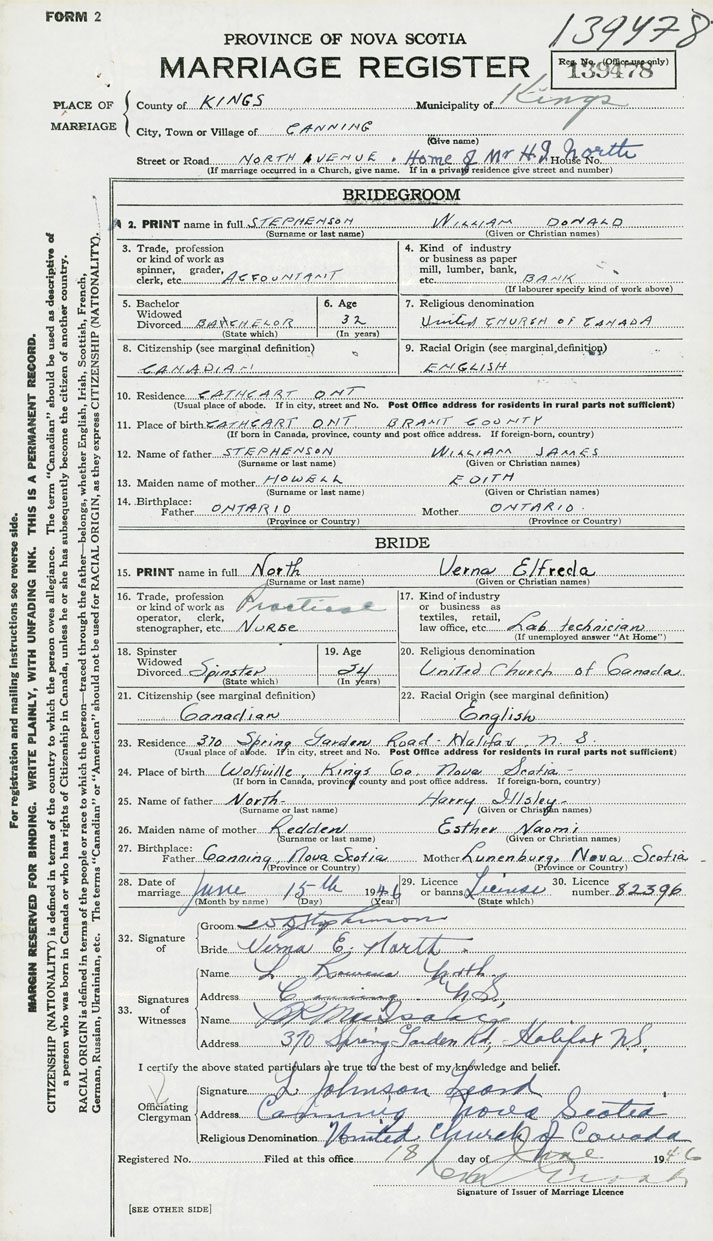 FORM 2
139478
PROVINCE OF NOVA SCOTIA
MARRIAGE REGISTER
Reg. No. (Office use only)
139478
PLACE OF MARRIAGE
County of KINGS Municipality of Kings
City, Town or Village of CANNING
(Give name)
Street or Road NORTH AVENUE. Home of Mr H.I. North House No.
(If marriage occurred in a Church, give name. If in a private residence give street and number)
BRIDEGROOM
2. PRINT name in full STEPHENSON WILLIAM DONALD
(Surname or last name) (Given or Christian names)
3. Trade, profession or kind of work as spinner, grader, clerk, etc. ACCOUNTANT
4. Kind of industry or business as paper mill, lumber, bank, etc. BANK
(If labourer specify kind of work above)
5. Bachelor Widowed Divorced BACHELOR
(State which)
6. Age 32
(In years)
7. Religious denomination
UNITED CHURCH OF CANADA
8. Citizenship (see marginal definition)
CANADIAN
9. Racial Origin (see marginal definition)
ENGLISH
10. Residence CATHCART ONT
(Usual place of abode. If in city, street and No. Post Office address for residents in rural parts not sufficient)
11. Place of birth CATHCART ONT BRANT COUNTY
(If born in Canada, province, county and post office address. If foreign-born, country)
12. Name of father STEPHENSON WILLIAM JAMES
(Surname or last name) (Given or Christian names)
13. Maiden name of mother HOWELL EDITH
(Surname or last name) (Given or Christian names)
14. Birthplace:
Father ONTARIO Mother ONTARIO.
(Province or Country) (Province or Country)
BRIDE
15. PRINT name in full North Verna Elfreda
(Surname or last name) (Given or Christian names)
16. Trade, profession or kind of work as operator, clerk, stenographer, etc. Practical NURSE
17. Kind of industry or business as textiles, retail, law office, etc. Lab technician
(If unemployed answer "At Home")
18. Spinster Widowed Divorced Spinster
(State which)
19. Age 24
(In years)
20. Religious denomination
United Church of Canada
21. Citizenship (see marginal definition)
Canadian
22. Racial Origin (see marginal definition)
English
23. Residence 370 Spring Garden Road - Halifax, N.S.
(Usual place of abode. If in city, street and No. Post Office address for residents in rural parts not sufficient)
24. Place of birth Wolfville, Kings Co. Nova Scotia
(If born in Canada, province, county and post office address. If foreign-born, country)
25. Name of father North Harry Illsley
(Surname or last name) (Given or Christian names)
26. Maiden name of mother Redden Esther Naomi
(Surname or last name) (Given or Christian names)
27. Birthplace:
Father Canning, Nova Scotia Mother Lunenburg, Nova Scotia
(Province or Country) (Province or Country)
28. Date of marriage June 15th 1946
(Month by name) (Day) (Year)
29. Licence or banns License
(State which)
30. Licence number 82396
32. Signature of
Groom W D Stephenson
Bride Verna E. North.
33. Signatures of Witnesses
Name L. Rowena North
Address Canning N.S.
Name MacIsaac
Address 370 Spring Garden Rd, Halifax N.S.
I certify the above stated particulars are true to the best of my knowledge and belief.
Officiating Clergyman
Signature L Johnson Leard
Address Canning Nova Scotia
Religious Denomination United Church of Canada
Registered No. Filed at this office 18 day of June 1946
Signature of Issuer of Marriage Licence
[SEE OTHER SIDE]
For registration and mailing instructions see reverse side.
MARGIN RESERVED FOR BINDING. WRITE PLAINLY, WITH UNFADING INK. THIS IS A PERMANENT RECORD.
CITIZENSHIP (NATIONALITY) is defined in terms of the country to which the person owes allegiance. The term "Canadian" should be used as descriptive of
a person who was born in Canada or who has rights of Citizenship in Canada, unless he or she has subsequently become the citizen of another country.
RACIAL ORIGIN is defined in terms of the people or race to which the person—traced through the father—belongs, whether English, Irish, Scottish, French,
German, Russian, Ukrainian, etc. The terms "Canadian" or "American" should not be used for RACIAL ORIGIN, as they express CITIZENSHIP (NATIONALITY).